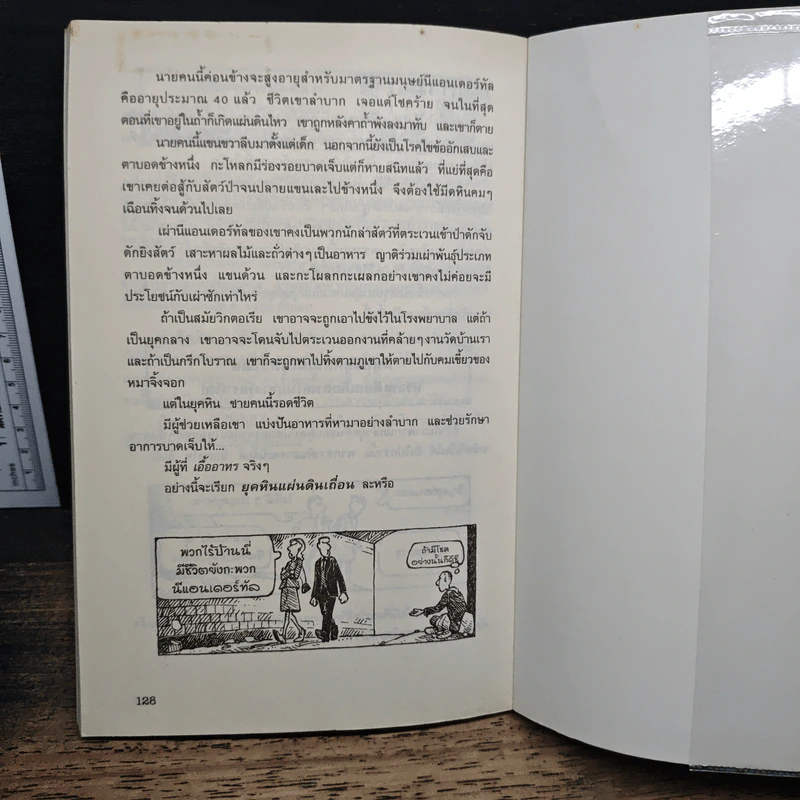 นายคนนี้ค่อนข้างจะสูงอายุสำหรับมาตรฐานมนุษย์นีแอนเดอร์ทัล
คืออายุประมาณ 40 แล้ว ชีวิตเขาลำบาก เจอแต่โชคร้าย จนในที่สุด
ตอนที่เขาอยู่ในถ้ำก็เกิดแผ่นดินไหว เขาถูกหลังคาถ้ำพังลงมาทับ และเขาก็ตาย
นายคนนี้แขนขวาลีบมาตั้งแต่เด็ก นอกจากนี้ยังเป็นโรคไขข้ออักเสบและ
ตาบอดข้างหนึ่ง กะโหลกมีร่องรอยบาดเจ็บแต่ก็หายสนิทแล้ว ที่แย่ที่สุดคือ
เขาเคยต่อสู้กับสัตว์ป่าจนปลายแขนเละไปข้างหนึ่ง จึงต้องใช้มีดหินคมๆ
เฉือนทิ้งจนด้วนไปเลย
เผ่านีแอนเดอร์ทัลของเขาคงเป็นพวกนักล่าสัตว์ที่ตระเวนเข้าป่าดักจับ
ดักยิงสัตว์ เสาะหาผลไม้และถั่วต่างๆเป็นอาหาร ญาติร่วมเผ่าพันธุ์ประเภท
ตาบอดข้างหนึ่ง แขนด้วน และกะโผลกกะเผลกอย่างเขาคงไม่ค่อยจะมี
ประโยชน์กับเผ่าซักเท่าไหร่
ถ้าเป็นสมัยวิกตอเรีย เขาอาจจะถูกเอาไปขังไว้ในโรงพยาบาล แต่ถ้า
เป็นยุคกลาง เขาอาจจะโดนจับไปตระเวนออกงานที่คล้ายๆงานวัดบ้านเรา
และถ้าเป็นกรีกโบราณ เขาก็จะถูกพาไปทิ้งตามภูเขาให้ตายไปกับคมเขี้ยวของ
หมาจิ้งจอก
แต่ในยุคหิน ชายคนนี้รอดชีวิต
มีผู้ช่วยเหลือเขา แบ่งปันอาหารที่หามาอย่างลำบาก และช่วยรักษา
อาการบาดเจ็บให้...
มีผู้ที่ เอื้ออาทร จริงๆ
อย่างนี้จะเรียก ยุคหินแผ่นดินเถื่อน ละหรือ
พวกไร้บ้านนี่
มีชีวิตยังกะพวก
นีแอนเดอร์ทัล
ถ้ามีโชค
อย่างนั้นก็ดีสิ
128
inches